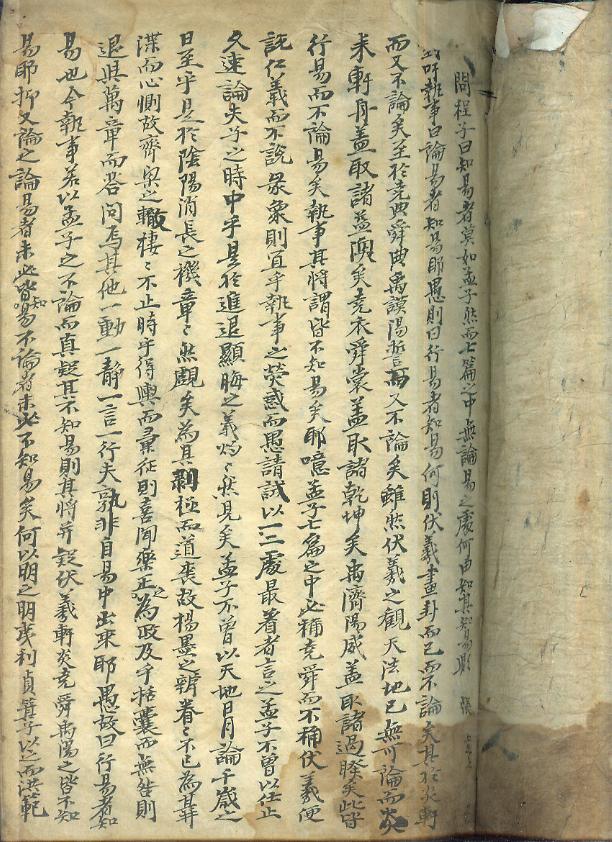 問程子曰知易者莫如孟子然而七篇之中無論易之處何由知其知易歟 張
執事曰論易者知易耶愚則曰行易者知易何則伏羲畫卦而已而不論矣其於炎軒
而又不論矣至於堯典舜典禹謨湯誓而又不論矣雖然伏羲之觀天法地已無可論而炎
耒軒舟盖取諸益渙矣堯衣舜裳盖取諸乾坤矣禹濟湯威盖取諸過睽矣此皆
行易而不論易矣執事其將謂皆不知易矣耶噫孟子七篇之中必稱堯舜而不稱伏羲便
託仁義而不說彖象則宜乎執事之熒惑而愚請試以一二處最著者言之孟子不曾以仕止
久速論夫子之時中乎是於進退顯晦之義灼々然見矣孟子不曾以天地日月論千歲之
日至乎是於陰陽消長之機章々然覩矣為其剝極而道喪故楊墨之辨眷々不已為其井
渫而心惻故齊梁之轍棲々不止時乎得輿而彙征則喜聞樂正之為政及乎括囊而無咎則
退與萬章而答問焉其他一動一靜一言一行夫孰非自易中出來耶愚故曰行易者知
易也今執事若以孟子之不論而真疑其不知易則其將并疑伏羲軒炎堯舜禹湯之皆不知
易耶抑又論之論易者未必皆知易不論者未必不知易矣何以明之明夷利貞箕子以之而洪範